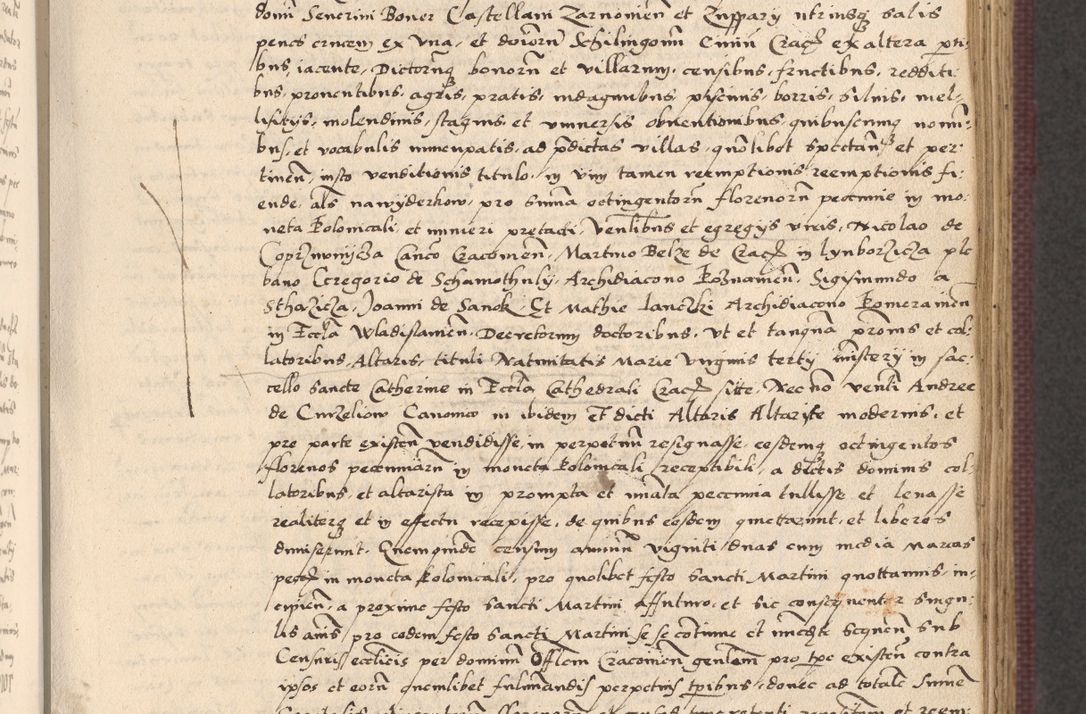 domini Severini Boner Castellani Zarnowien et Zuppary utriusq salis
penes crucem ex una, et dominorum Schilingonum Civium Crac ex altera parti-
bus, iacente, Dictorumq bonorum et villarum, censibus, fructibus, redditi-
bus, proventibus, agris, pratis, indaginibus piscinis, borris, silvis, mel-
lificijs, molendinis, stagnis, et universis obventionibus, quibuscunq nomi-
bus, et vocabulis nuncupatis, ad pdictas villas, quolibet spectan et per-
tinen, iusto venditionis titulo, in vim tamen reemptionis reemptionis fi-
ende, als nawyderkow, pro summa octingentorum florenorum pecunie in mo-
neta Polonicali et numeri pretacti, Venlibus et egregijs viris, Nicolao de
Canco Cracovien, Martino Belze de Crac in ple
bano Gregorio de Schamothuly, Archidiacono Poznanien, Sigismundo a
Sthazicza, Joanni de Sanok, Et Mathie Archidiacono Pomeranien
in Eccla Wladislavien, Decretorum doctoribus, Ut et tanquam et col-
latoribus, Altaris, tituli Nativitatis Marie Virginis tertij misterij in sac-
cello sancte Catherine in Eccla Cathedrali Crac site, Necno venli Andree
de Canonico in ibidem Et dicti Altaris Altariste moderno, et
pro parte existen vendidisse, in perpetuum resignasse, eosdemq octingentos
florenos pecuniarum in moneta Polonicali receptibili, a dictis dominis col-
latoribus, et altarista in prompta et numerata pecunia tullisse et levasse
realiterq et in effectu recepisse, de quibus eosdem quittarunt, et liberos
dimiserunt, Quempiude censum annuum viginti duas cum media Marcas
pecc in moneta Polonicali, pro quolibet festo Sancti Martini quottannis, in-
cipien, a proximo festo Sancti Martini affuturo, et sic consequenter singu-
lis annis pro eodem festo Sancti Martini se se continue et sequen Sub
Censuris ecclicis per dominum Offlem Cracovien genlem pro tpe existen contra
ipsos et eorum quemlibet fulminandis perpetuis tpribus, donec ad totalem